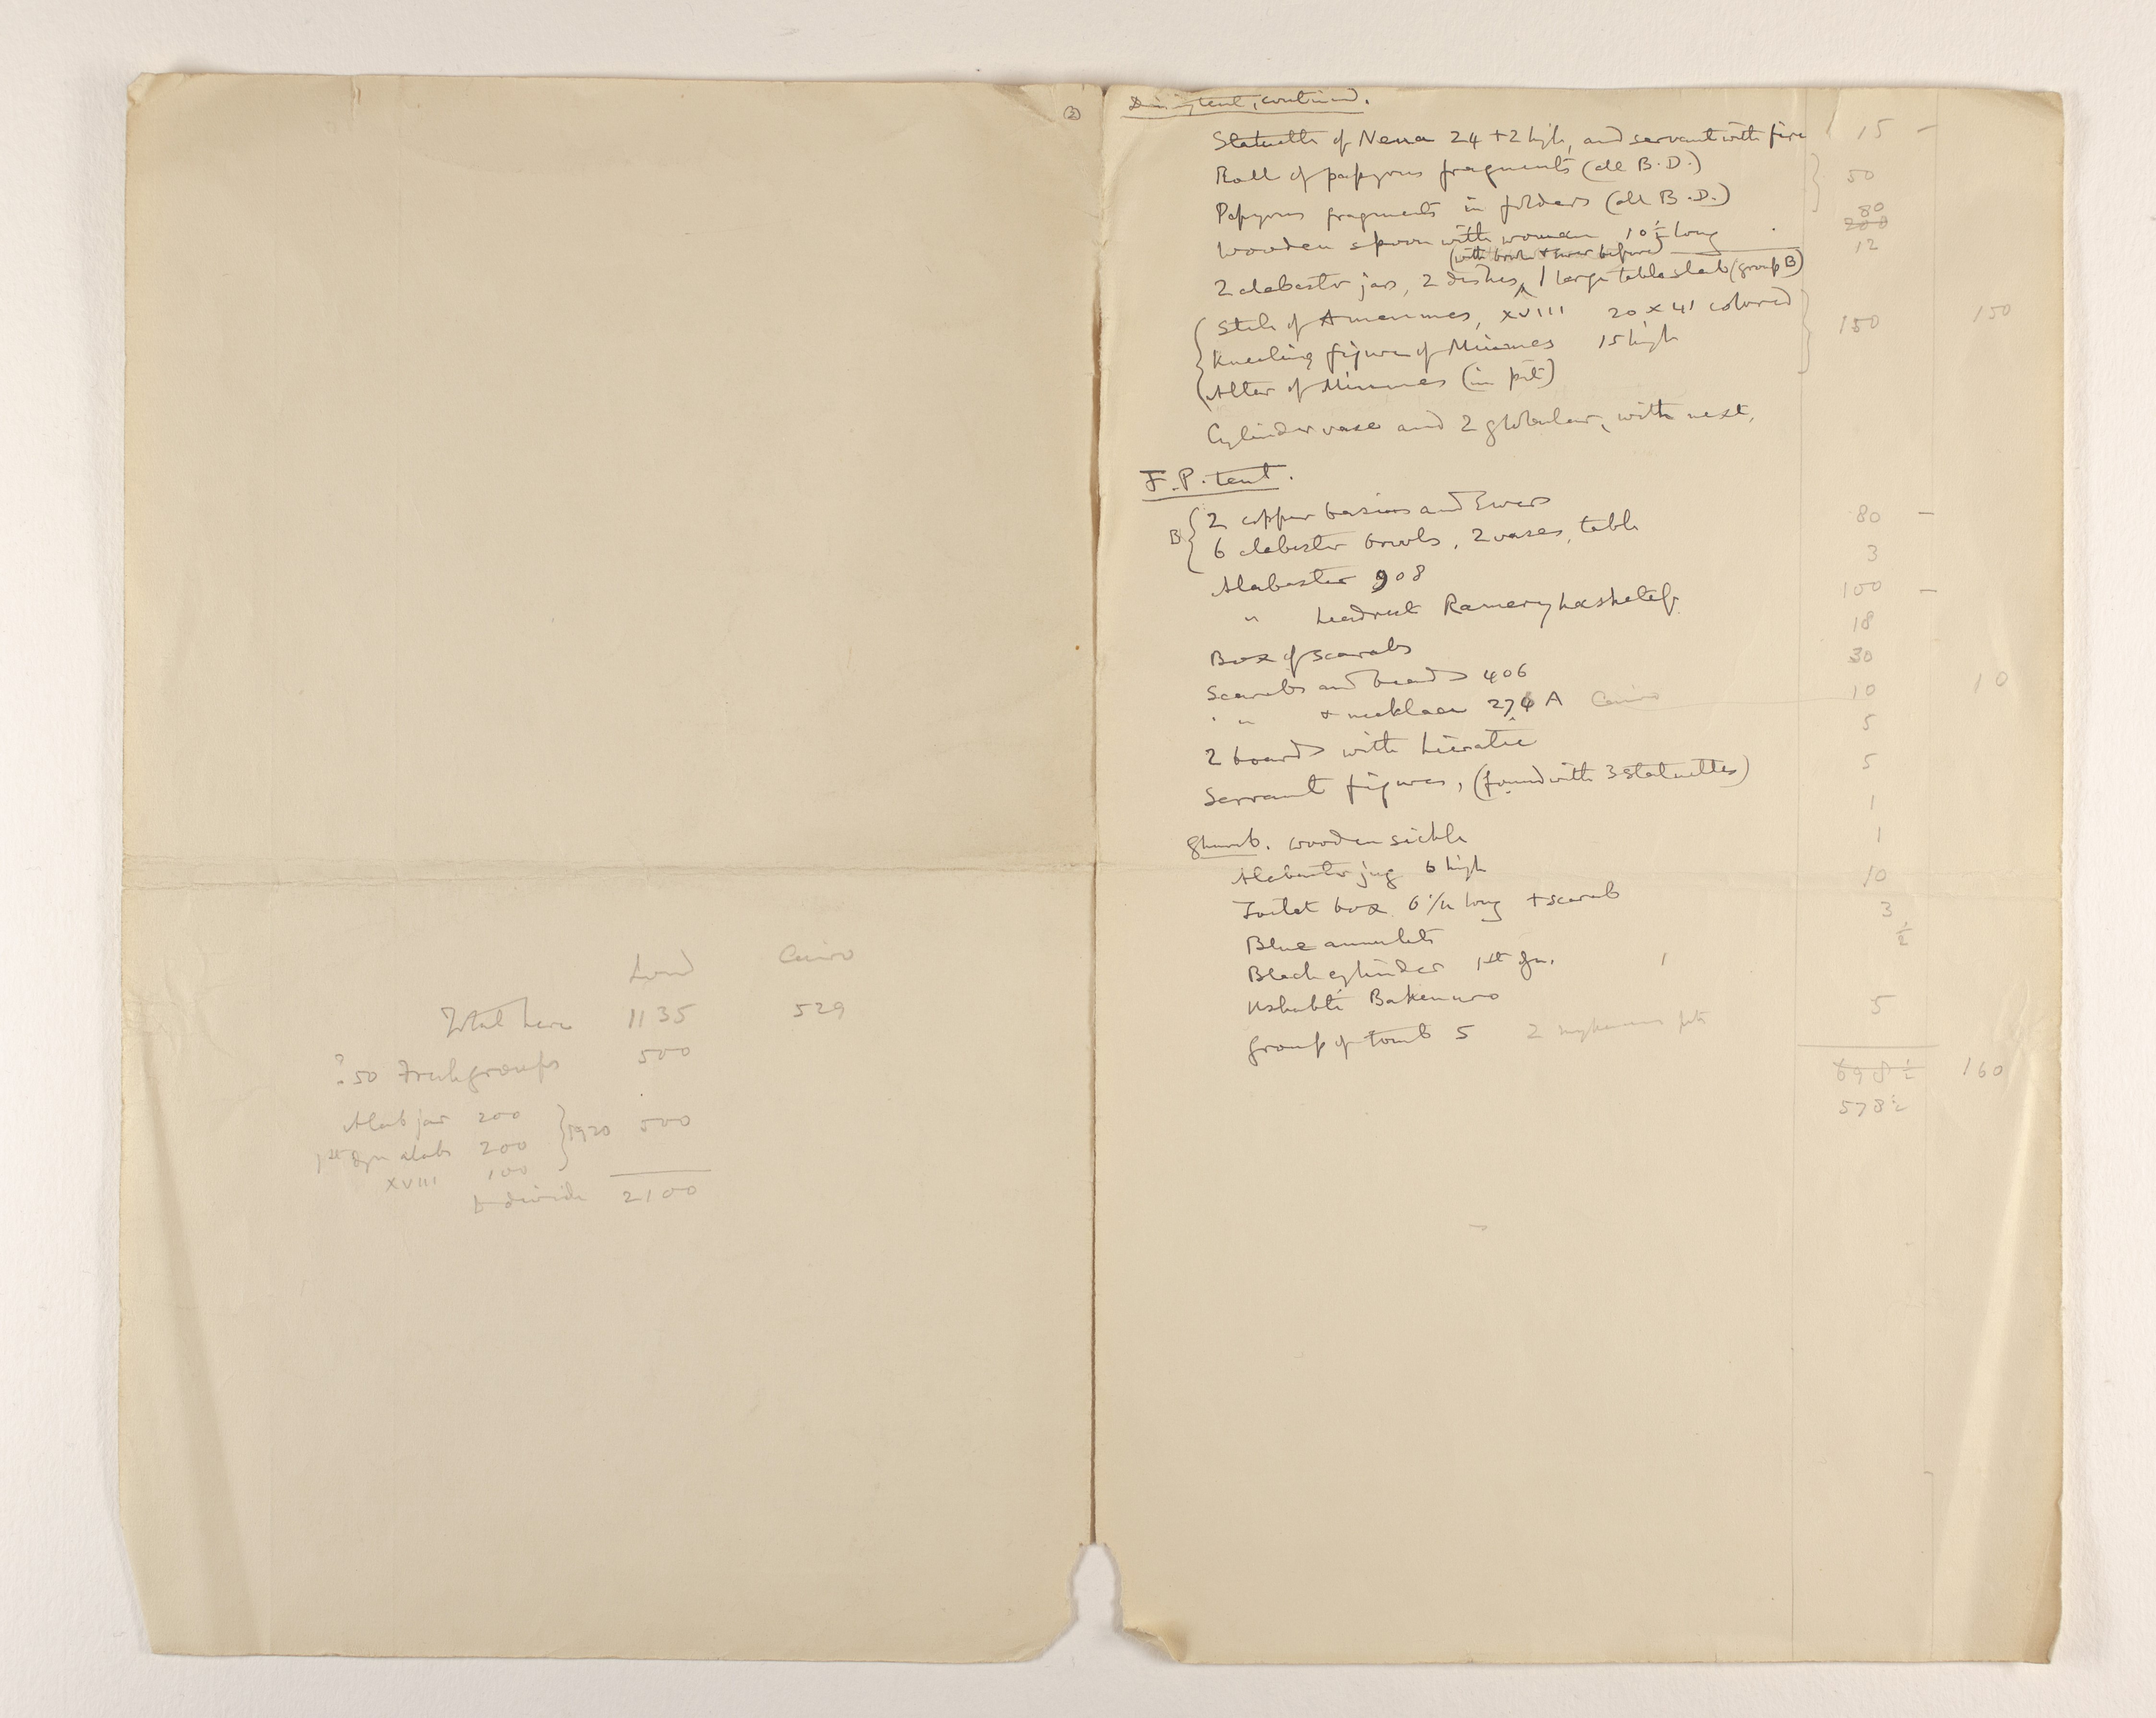 Lond Cairo
Total here 1135 529
? 50 Fresh groups 500
Alab jar 200
1st Dyn alab 200 } 1920 500
XVIII 100
to divide 2100
(2)
Dining tent, continued.
Statuette of Nena 24 + 2 high, and servant with fire 15 –
Roll of papyrus fragments (all B.D.) } 50
Papyrus fragments in folders (all B.D.) 80 200
Wooden spoon with woman 10½ long 12
(with bowl & ewer before)
2 alabaster jars, 2 dishes, 1 large table slab (group B)
{ Stele of Amenmes, XVIII 20 x 41 colored }
Kneeling figure of Minmes 15 high 150 150
Altar of Minmes (in pit)
Cylinder vase and 2 globular, with next.
F.P. tent.
B { 2 copper basins and Ewers
6 alabaster bowls, 2 vases, table 80 –
Alabaster 908 3
" headrest Rameryhashetef 100 –
Box of scarabs 18
Scarabs and beads 406 30
" " & necklace 276 A Cairo 10 10
2 boards with hieratic 5
Servant figures, (found with 3 statuettes) 5
Ghurob. wooden sickle 1
Alabaster jug 6 high 1
Toilet box 6 1/2 long + scarab 10
Blue amulets 3
Black cylinder 1st dyn. ½
Ushabti Bakenuro
Group of tomb 5 2 5
698½ 160
578½